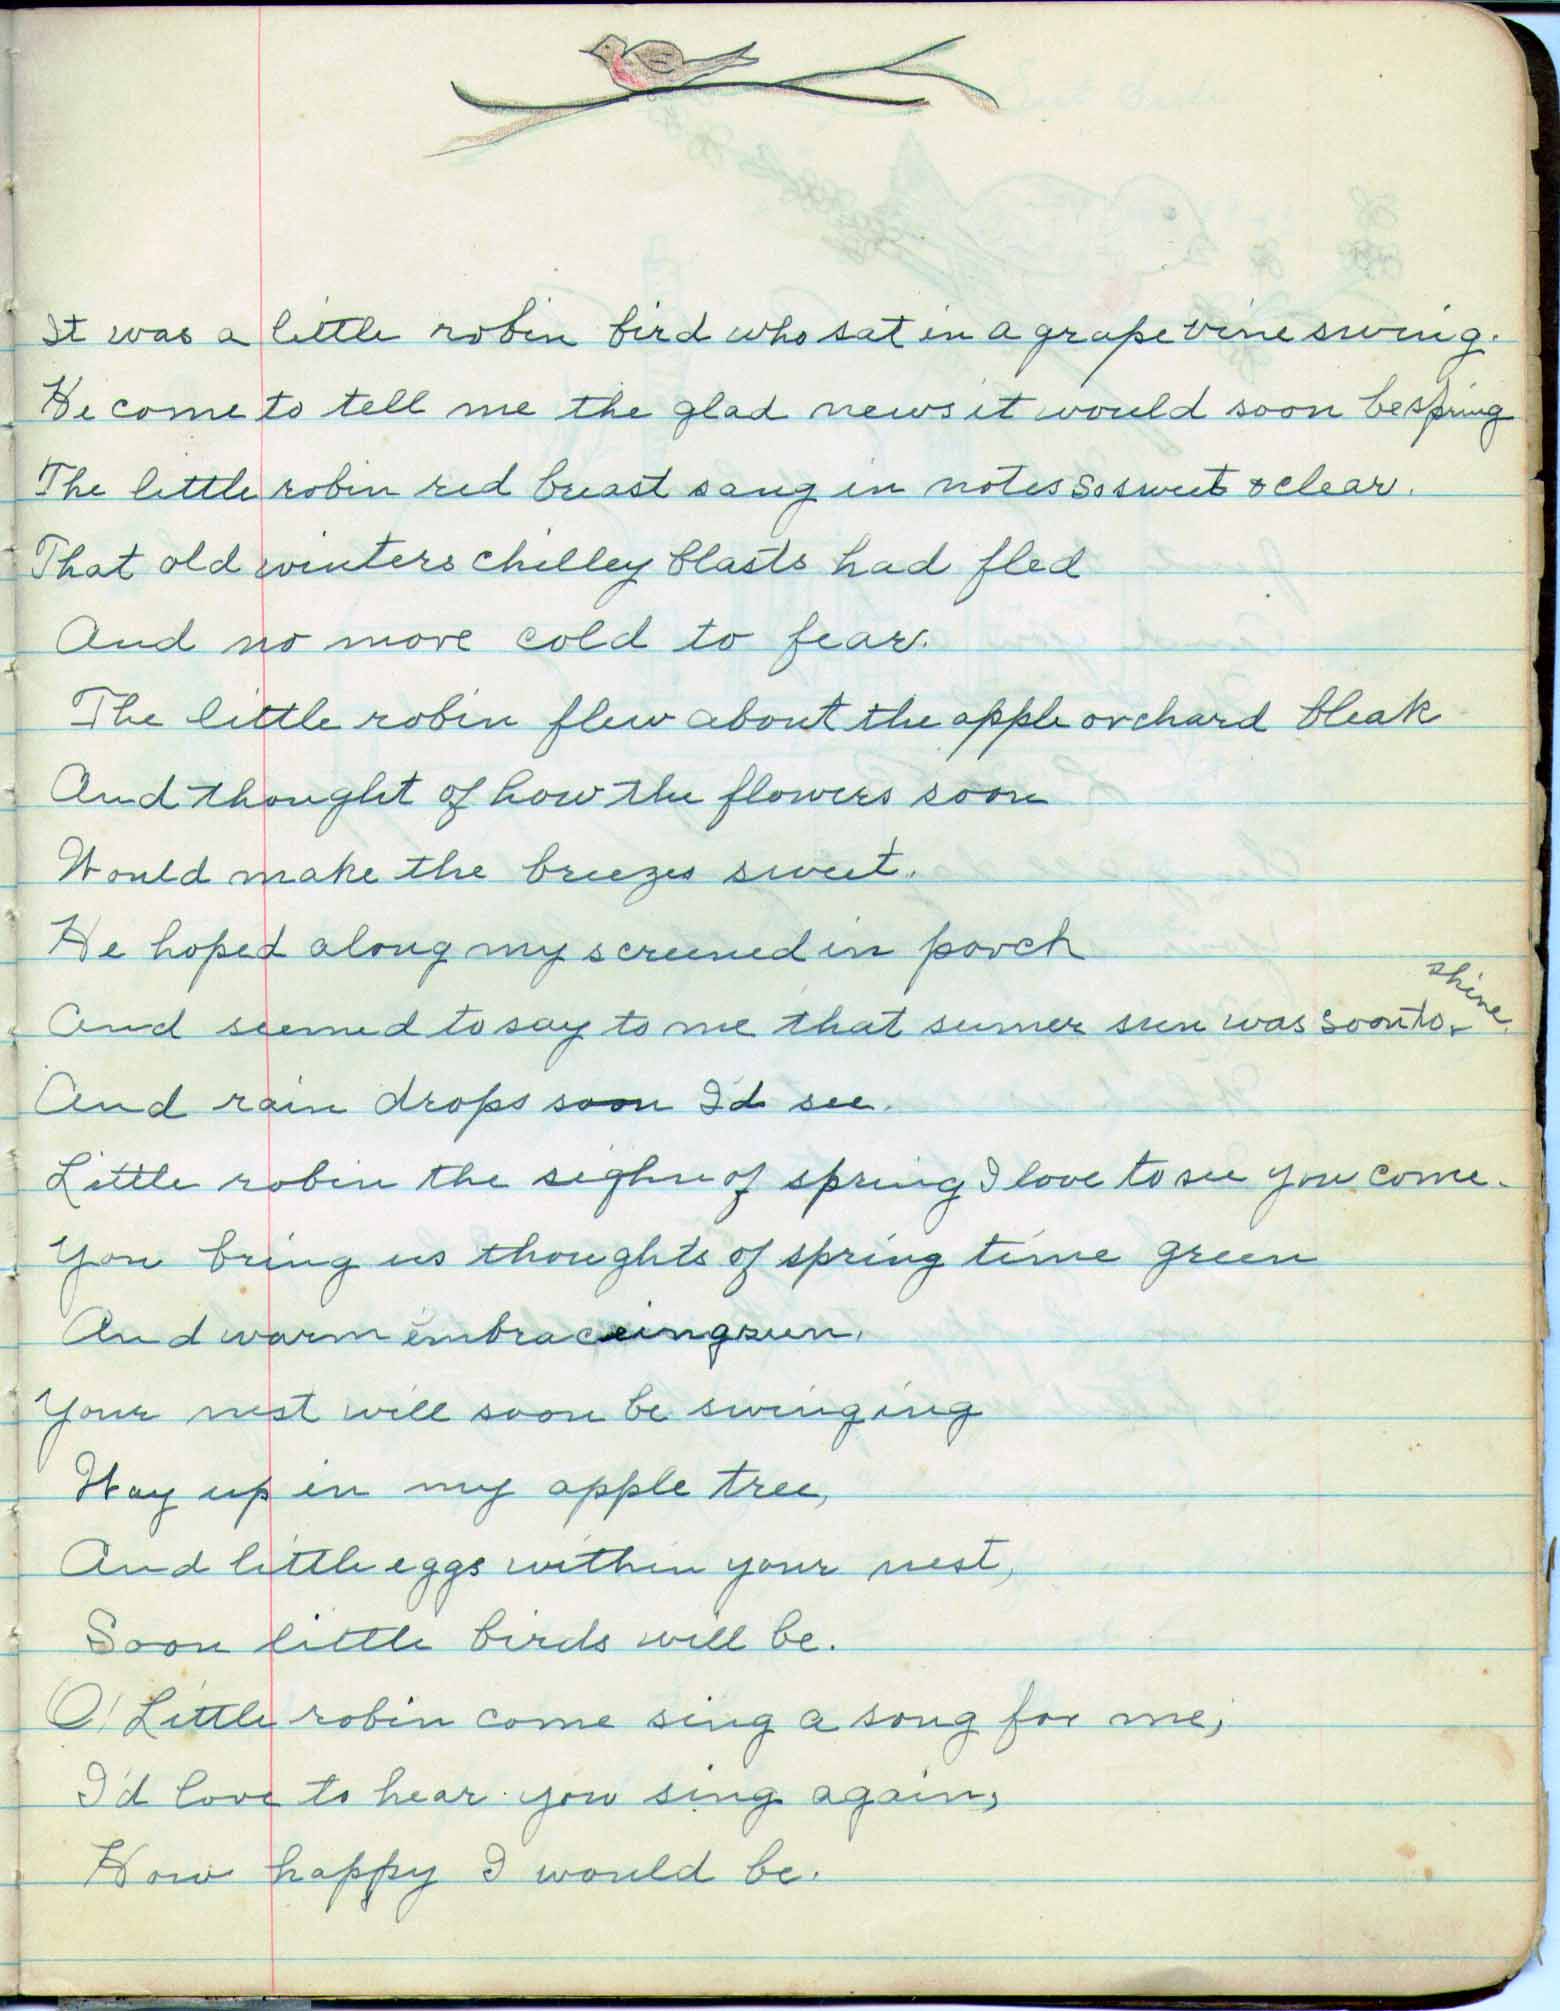 It was a little robin bird who sat in a grape vine swing.
He come to tell me the glad news it would soon be spring
The little robin red breast sang in notes so sweet & clear.
That old winters chilley blasts had fled
And no more cold to fear.
The little robin flew about the apple orchard bleak
And thought of how the flowers soon
Would make the breezes sweet.
He hoped along my screened in porch
And seemed to say to me that sumer sun was soon to shine.
And rain drops soon I'd see.
Little robin the sighn of spring I love to see you come.
You bring us thoughts of spring time green
And warm embraceing sun.
Your nest will soon be swinging
Way up in my apple tree,
And little eggs within your nest,
Soon little birds will be.
O! Little robin come sing a song for me,
I'd love to hear you sing again,
How happy I would be.